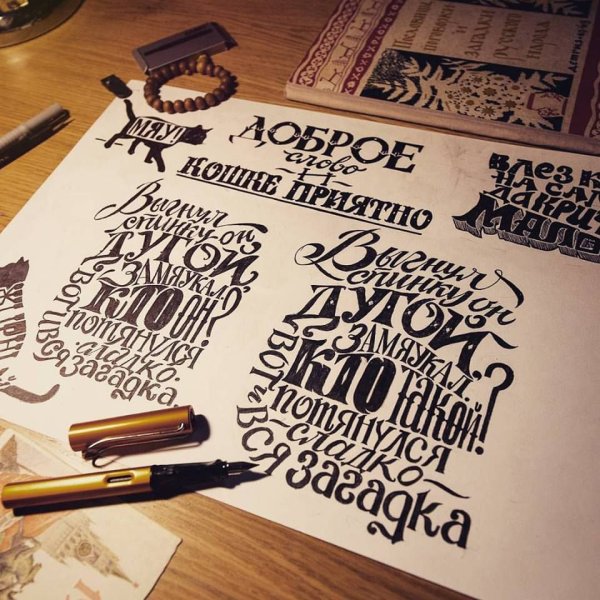 Пословицы
поговорки
и
загадки
русского
народа
МЯУ!!
ДОБРОЕ
слово
И
КОШКЕ ПРИЯТНО
ВЛЕЗ К
НА СЛ
ЗАКРИЧ
МАЛО
Выгнул
спинку он
ДУГОЙ,
ЗАМЯУКАЛ.
КТО ОН?
потянулся
сладко.
Вот и Вся загадка
Выгнул
спинку он
ДУГОЙ,
ЗАМЯУКАЛ.
КТО такой?
потянулся
сладко
Вот и Вся загадка